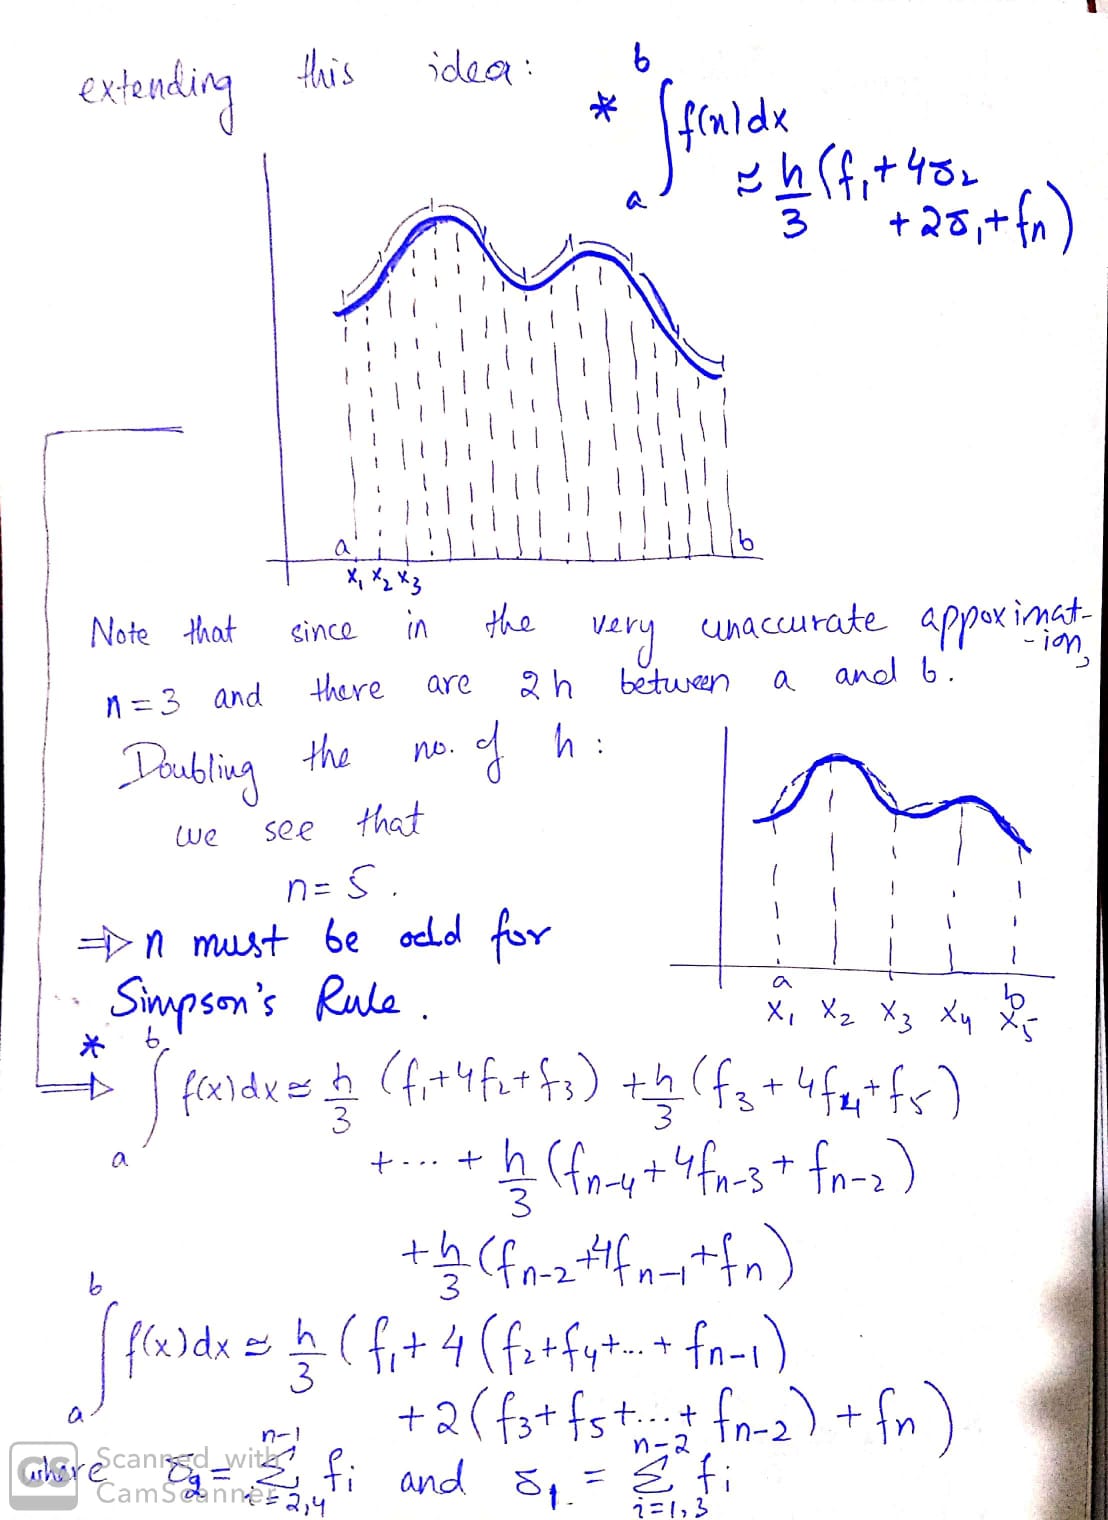 extending this idea:
* ∫ₐᵇ f(x)dx
≈ h/3 (f₁ + 4δ₂
+ 2δ₁ + fn)
a b
x₁ x₂ x₃
Note that since in the very unaccurate appoximat-
-ion,
n=3 and there are 2h between a and b.
Doubling the no. of h :
we see that
n=5.
⇒ n must be odd for
Simpson's Rule.
a b
x₁ x₂ x₃ x₄ x₅
* ⇒ ∫ₐᵇ f(x)dx ≈ h/3 (f₁+4f₂+f₃) + h/3 (f₃+4f₄+f₅)
+ ... + h/3 (fn-4 + 4fn-3 + fn-2)
+ h/3 (fn-2 + 4fn-1 + fn)
∫ₐᵇ f(x)dx ≈ h/3 (f₁ + 4(f₂+f₄+...+ fn-1)
+2(f₃+f₅+...+ fn-2) + fn)
where δ₂ = Σ_{i=2,4}^{n-1} fi and δ₁ = Σ_{i=1,3}^{n-2} fi
CS Scanned with
CamScanner